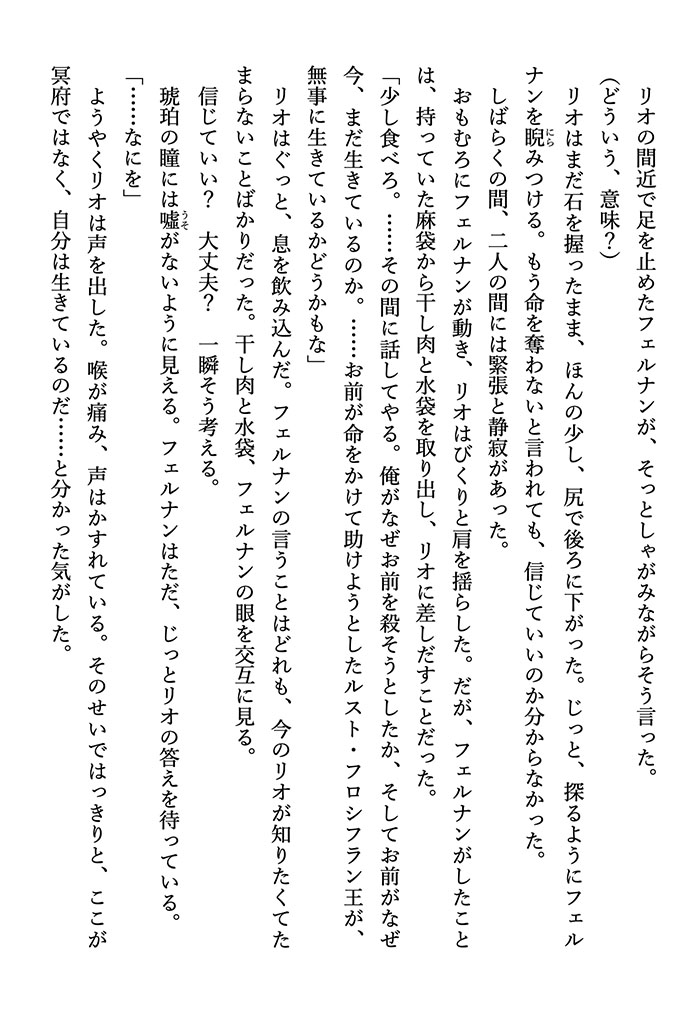 リオの間近で足を止めたフェルナンが、そっとしゃがみながらそう言った。
(どういう、意味?)
リオはまだ石を握ったまま、ほんの少し、尻で後ろに下がった。じっと、探るようにフェル
ナンを睨みつける。もう命を奪わないと言われても、信じていいのか分からなかった。
しばらくの間、二人の間には緊張と静寂があった。
おもむろにフェルナンが動き、リオはびくりと肩を揺らした。だが、フェルナンがしたこと
は、持っていた麻袋から干し肉と水袋を取り出し、リオに差しだすことだった。
「少し食べろ。……その間に話してやる。俺がなぜお前を殺そうとしたか、そしてお前がなぜ
今、まだ生きているのか。……お前が命をかけて助けようとしたルスト・フロシフラン王が、
無事に生きているかどうかもな」
リオはぐっと、息を飲み込んだ。フェルナンの言うことはどれも、今のリオが知りたくてた
まらないことばかりだった。干し肉と水袋、フェルナンの眼を交互に見る。
信じていい? 大丈夫? 一瞬そう考える。
琥珀の瞳には嘘がないように見える。フェルナンはただ、じっとリオの答えを待っている。
「……なにを」
ようやくリオは声を出した。喉が痛み、声はかすれている。そのせいではっきりと、ここが
冥府ではなく、自分は生きているのだ……と分かった気がした。